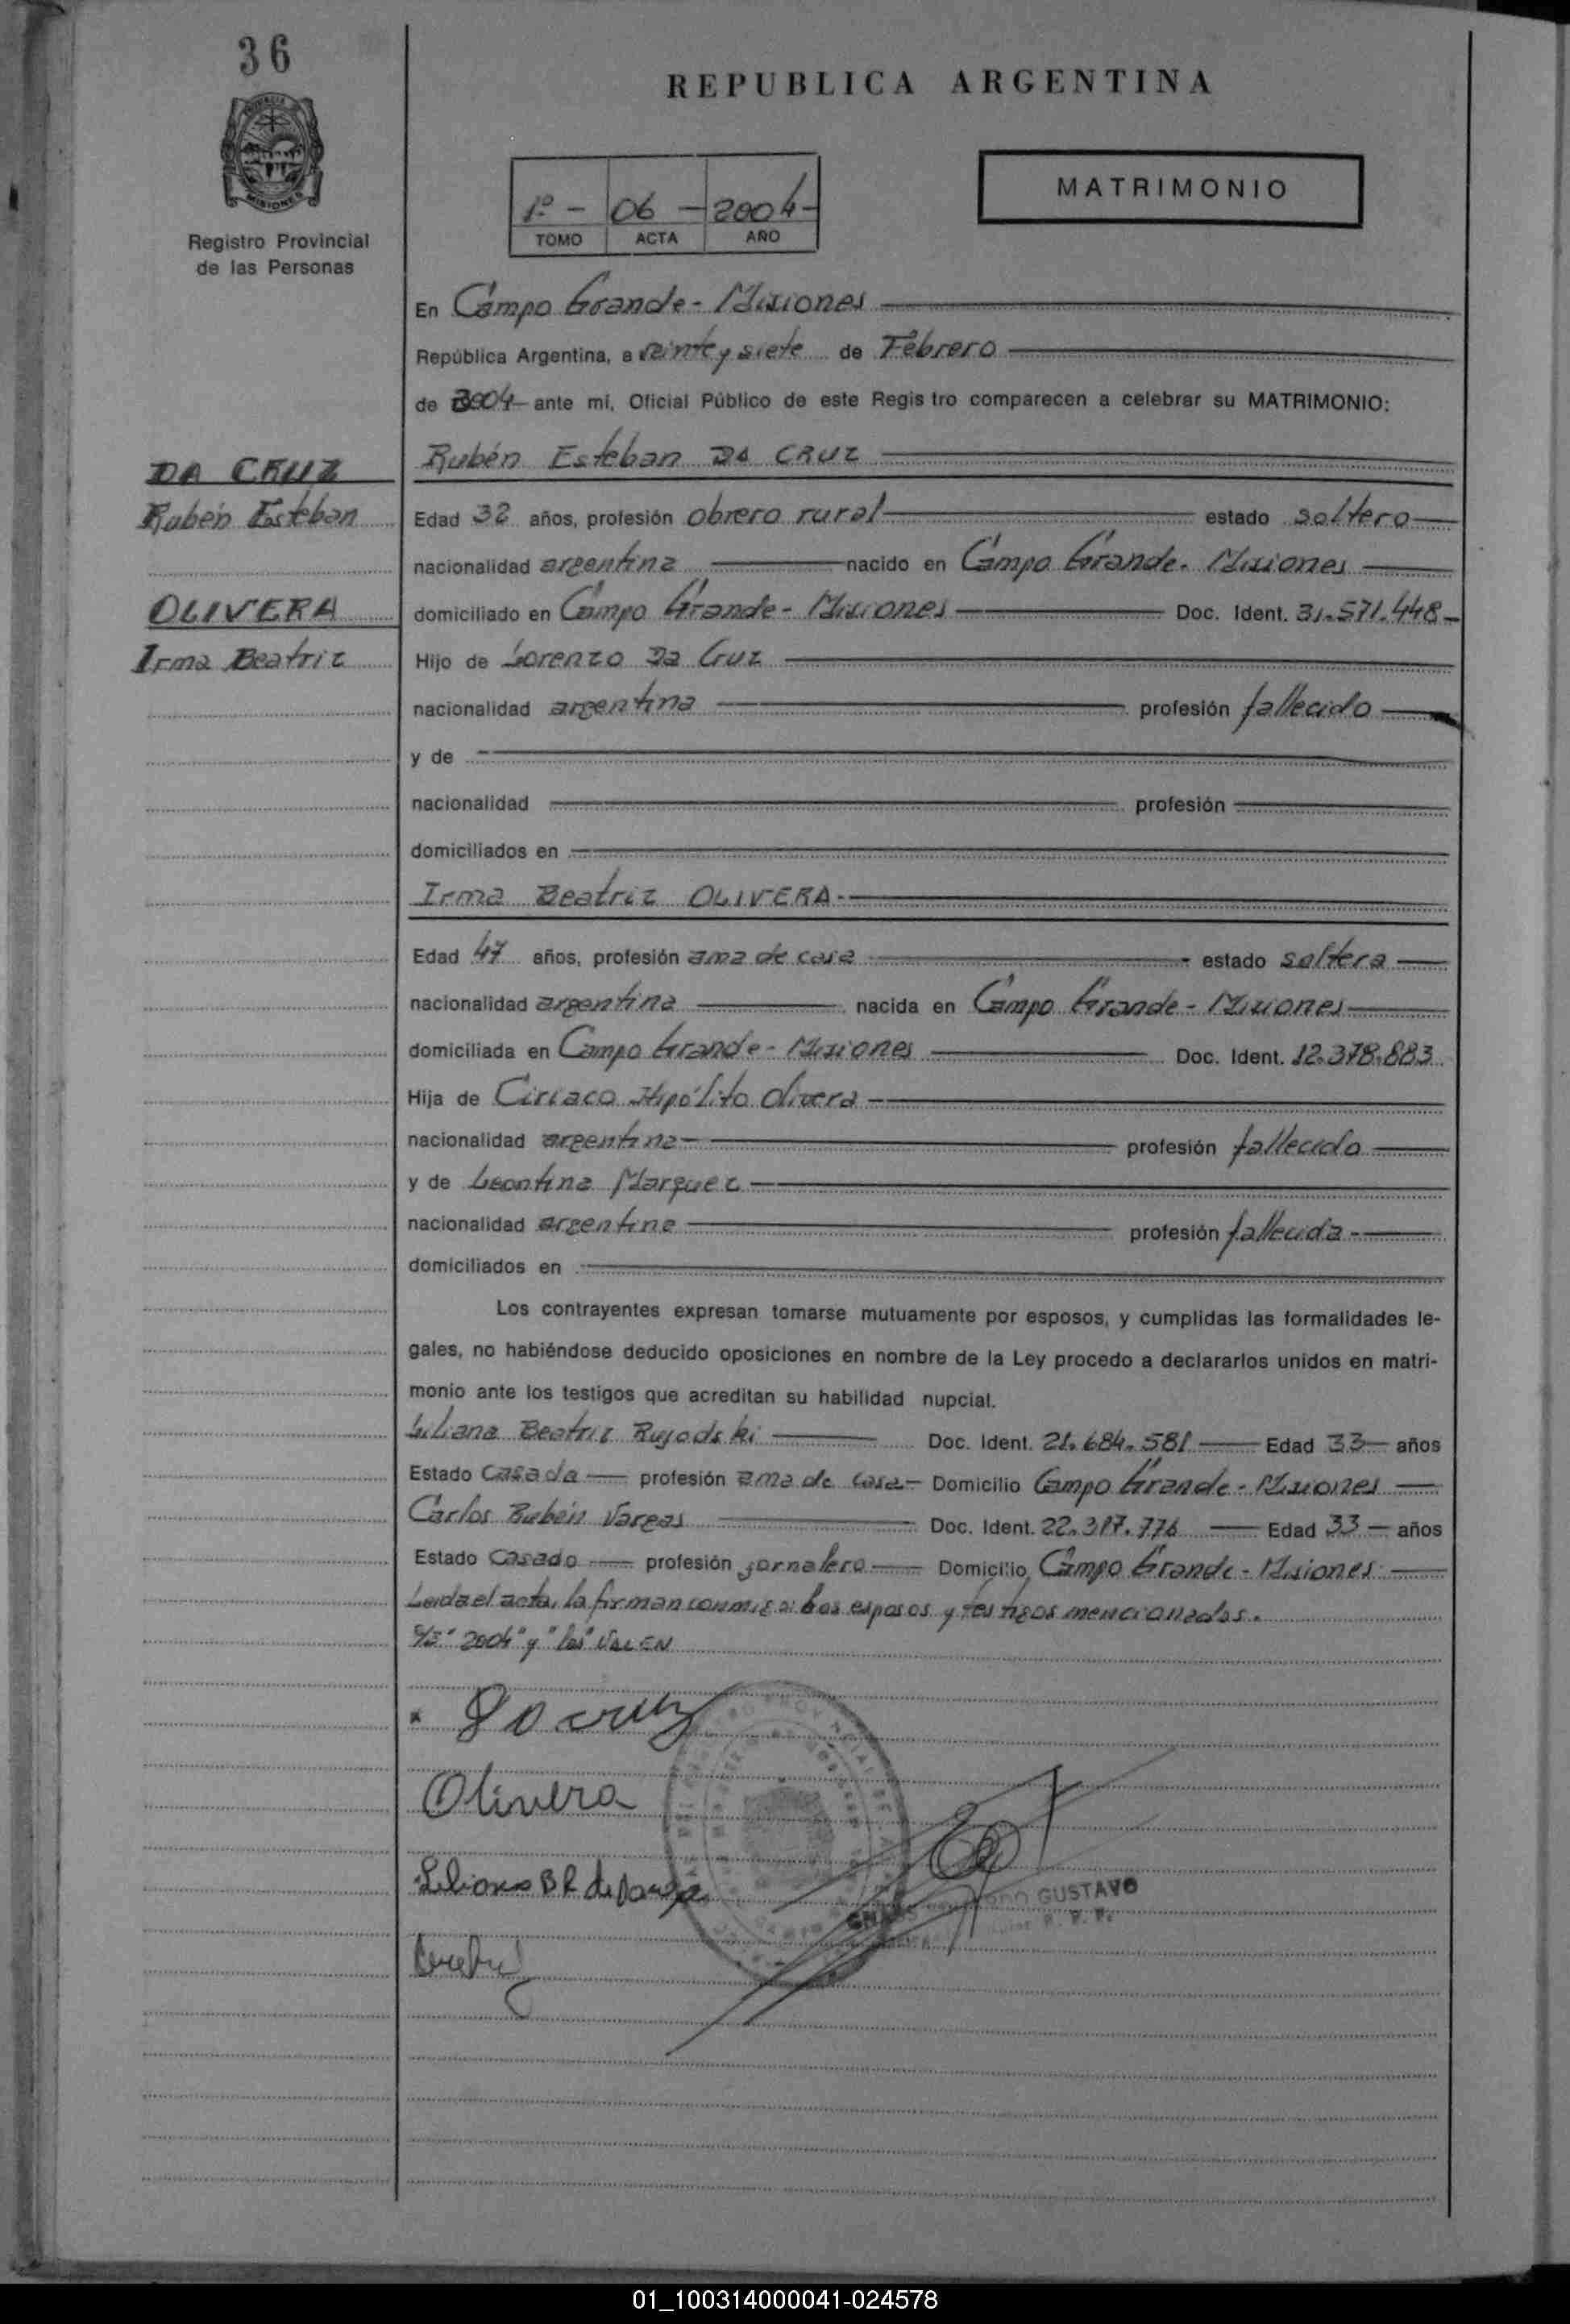 36
REPUBLICA ARGENTINA
MISIONES
Registro Provincial
de las Personas
1º - 06 - 2004 -
TOMO ACTA AÑO
MATRIMONIO
En Campo Grande - Misiones
República Argentina, a veinte y siete de Febrero
de 2004 ante mí, Oficial Público de este Regis tro comparecen a celebrar su MATRIMONIO:
DA CRUZ
Rubén Esteban
OLIVERA
Irma Beatriz
Rubén Esteban DA CRUZ
Edad 32 años, profesión obrero rural estado soltero
nacionalidad argentina nacido en Campo Grande - Misiones
domiciliado en Campo Grande - Misiones Doc. Ident. 31.571.448 -
Hijo de Lorenzo Da Cruz
nacionalidad argentina profesión fallecido
y de
nacionalidad profesión
domiciliados en
Irma Beatriz OLIVERA -
Edad 47 años, profesión ama de casa estado soltera
nacionalidad argentina nacida en Campo Grande - Misiones
domiciliada en Campo Grande - Misiones Doc. Ident. 12.378.883
Hija de Ciriaco Hipólito Olivera
nacionalidad argentina profesión fallecido
y de Leontina Marquez
nacionalidad argentina profesión fallecida
domiciliados en
Los contrayentes expresan tomarse mutuamente por esposos, y cumplidas las formalidades le-
gales, no habiéndose deducido oposiciones en nombre de la Ley procedo a declararlos unidos en matri-
monio ante los testigos que acreditan su habilidad nupcial.
Liliana Beatriz Rujodski Doc. Ident. 21.684.581 Edad 33 años
Estado Casada profesión ama de casa Domicilio Campo Grande - Misiones
Carlos Rubén Vargas Doc. Ident. 22.317.776 Edad 33 años
Estado Casado profesión jornalero Domicilio Campo Grande - Misiones
Leída el acta, la firman conmigo: los esposos y testigos mencionados.
S/E "2004" y "los" VALEN
Da cruz
Olivera
Liliana B R de
GUSTAVO
R. P. P.
01_100314000041-024578